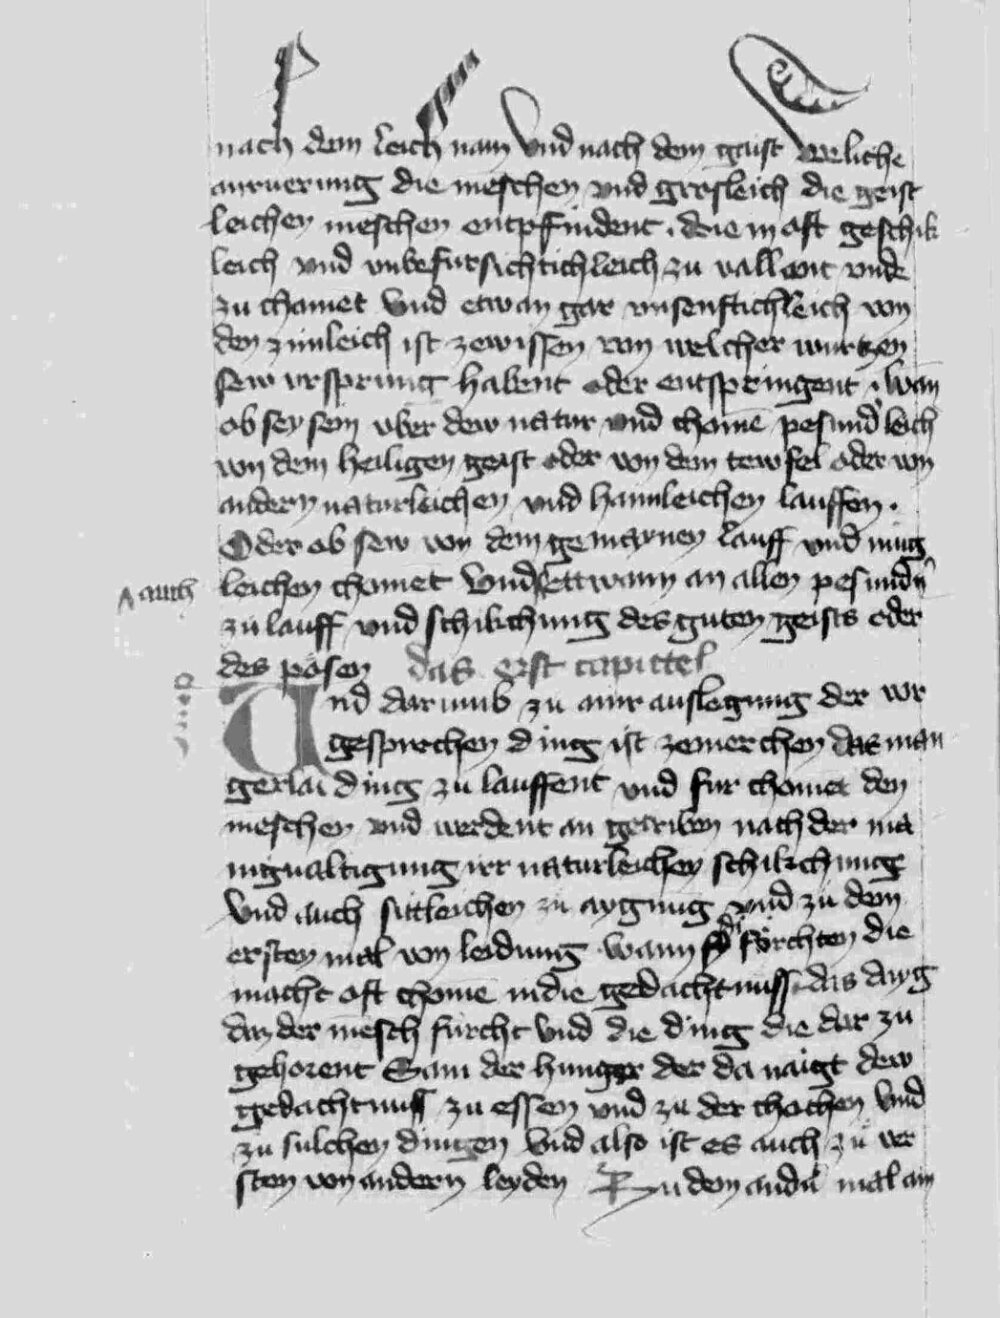 nach dem leichnam Und nach dem gaist werliche
anruerung die meschen vnd grosleich die geist
leichen meschen entpfindent. die in oft geschik
leich vnd vnbefursichtichleich zu vallent vnde
zu chomet Und etwan gar vnsenftichleich von
den zimleich ist zewissen von welcher wurtzen
sew vrsprung habent oder entspringent. wan
ob sey sein vber dew natur vnd chomē pesund'leich
von dem heiligen geist oder von dem tewfel oder von
andern naturleichen vnd haimleichen lauffen.
Oder ob sew von dem gemaynen lauff vnd mug
leichen chomet Und ettwann an allen pesundn̄
auch
zu lauff vnd schikchung des guten geists oder
des pösen das erst capittel
Und darumb zu ainr auslegung der vor
gesprochen ding ist zemerchen das man
gerlai ding zu lauffent vnd fur chomet den
meschen vnd werdent an getriben nach der ma
nigualtigung irr naturleichen schikchung
Und auch sittleichen zu aygnung vnd zu dem
ersten mal von leidung wann di förchten die
macht oft chomē in die gedachtnuss das ding
daz der mēsch fürcht Und die ding die dar zu
gehorent Sam der hunger der da naigt dew
gedachtnuss zu essen vnd zu der chochen Und
zu sulchen dingen Und also ist es auch zu ver
sten von andern leyden Zu dem andn̄ mal ain